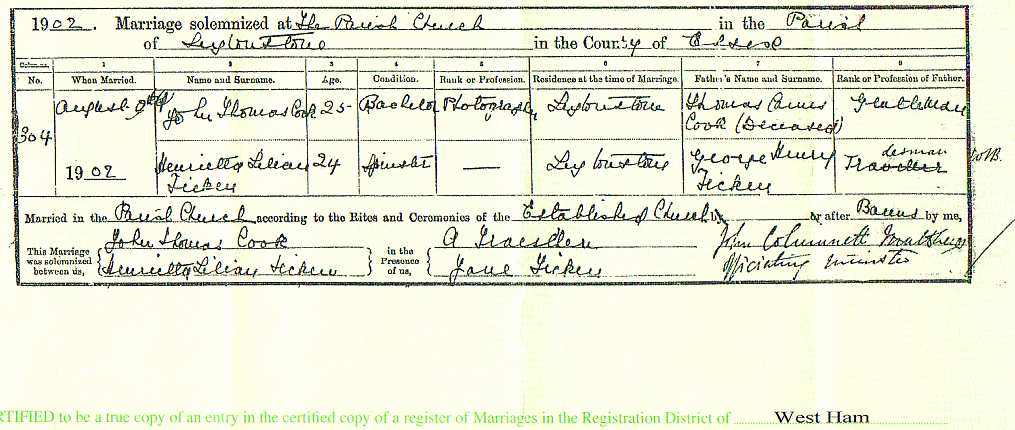 1902. Marriage solemnized at The Parish Church in the Parish
of Leytonstone in the County of Essex
Columns. 1 2 3 4 5 6 7 8
No. When Married. Name and Surname. Age. Condition. Rank or Profession. Residence at the time of Marriage. Father's Name and Surname. Rank or Profession of Father.
304 August 9th John Thomas Cook 25 Bachelor Photographer Leytonstone Thomas Cook (Deceased) Gentleman
1902 Henrietta Lilian Ficken 24 Spinster — Leytonstone George Henry Ficken Traveller
Married in the Parish Church according to the Rites and Ceremonies of the Established Church by or after Banns by me,
This Marriage was solemnized between us, John Thomas Cook in the Presence of us, A John
Henrietta Lilian Ficken Jane Ficken Officiating Minister
CERTIFIED to be a true copy of an entry in the certified copy of a register of Marriages in the Registration District of West Ham